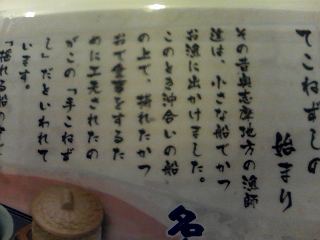 てこねずしの
始まり
その昔奥志摩地方の漁師
達は、小さな船でかつ
お漁に出かけました。
このとき沖合いの船
の上で、捕れたかつ
おで食事をするた
めに工夫されたの
がこの「手こねず
し」だといわれて
います。
「揺れる船の
名